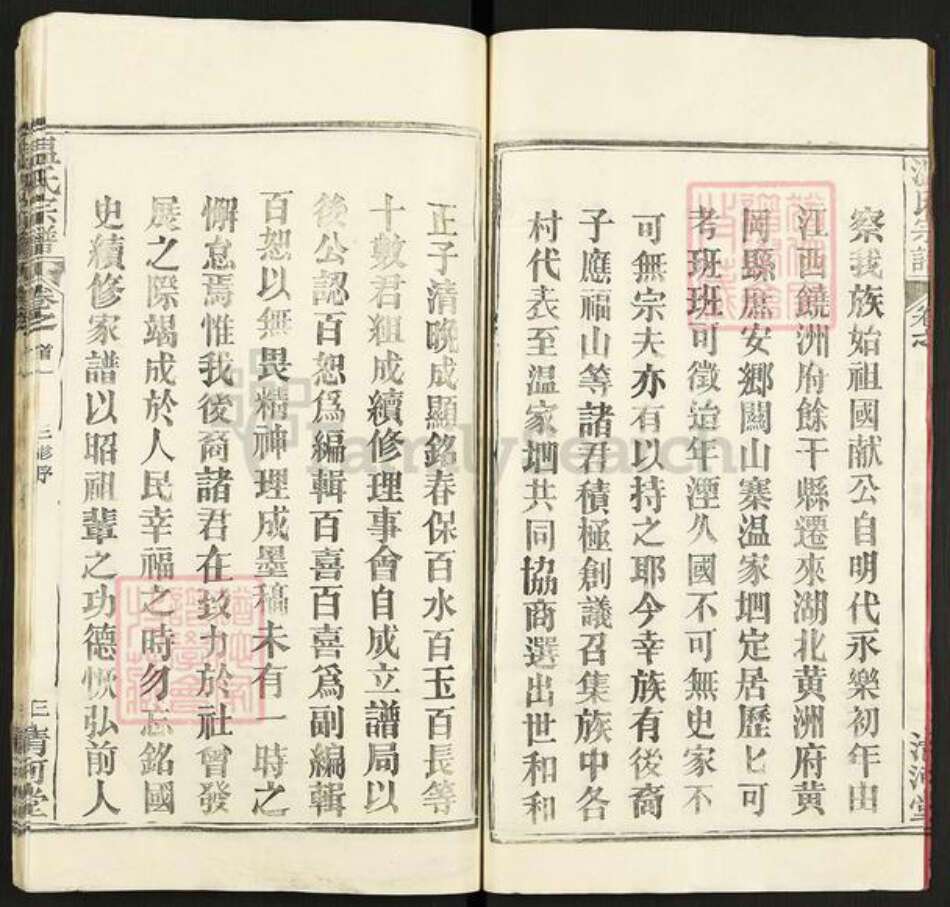 察我族始祖國献公自明代永樂初年由
江西饒洲府餘干縣遷來湖北黄洲府黄
岡縣庶安鄉闗山寨温家堌定居歷匕可
考班班可徵迨年湮久國不可無史家不
可無宗夫亦有以持之耶今幸族有後裔
子應福山等諸君積極創議召集族中各
村代表至温家堌共同協商選出世和和
清河堂
正子清晚成顯銘春保百水百玉百長等
十數君組成續修理事會自成立譜局以
後公認百恕爲編輯百喜百喜爲副編輯
百恕以無畏精神理成墨稿未有一時之
懈怠焉惟我後裔諸君在致力於社會發
展之際竭成於人民幸福之時勿忘銘國
史續修家譜以昭祖輩之功德恢弘前人
温氏宗譜
卷之首一
三修序
三
清河堂
familysearch